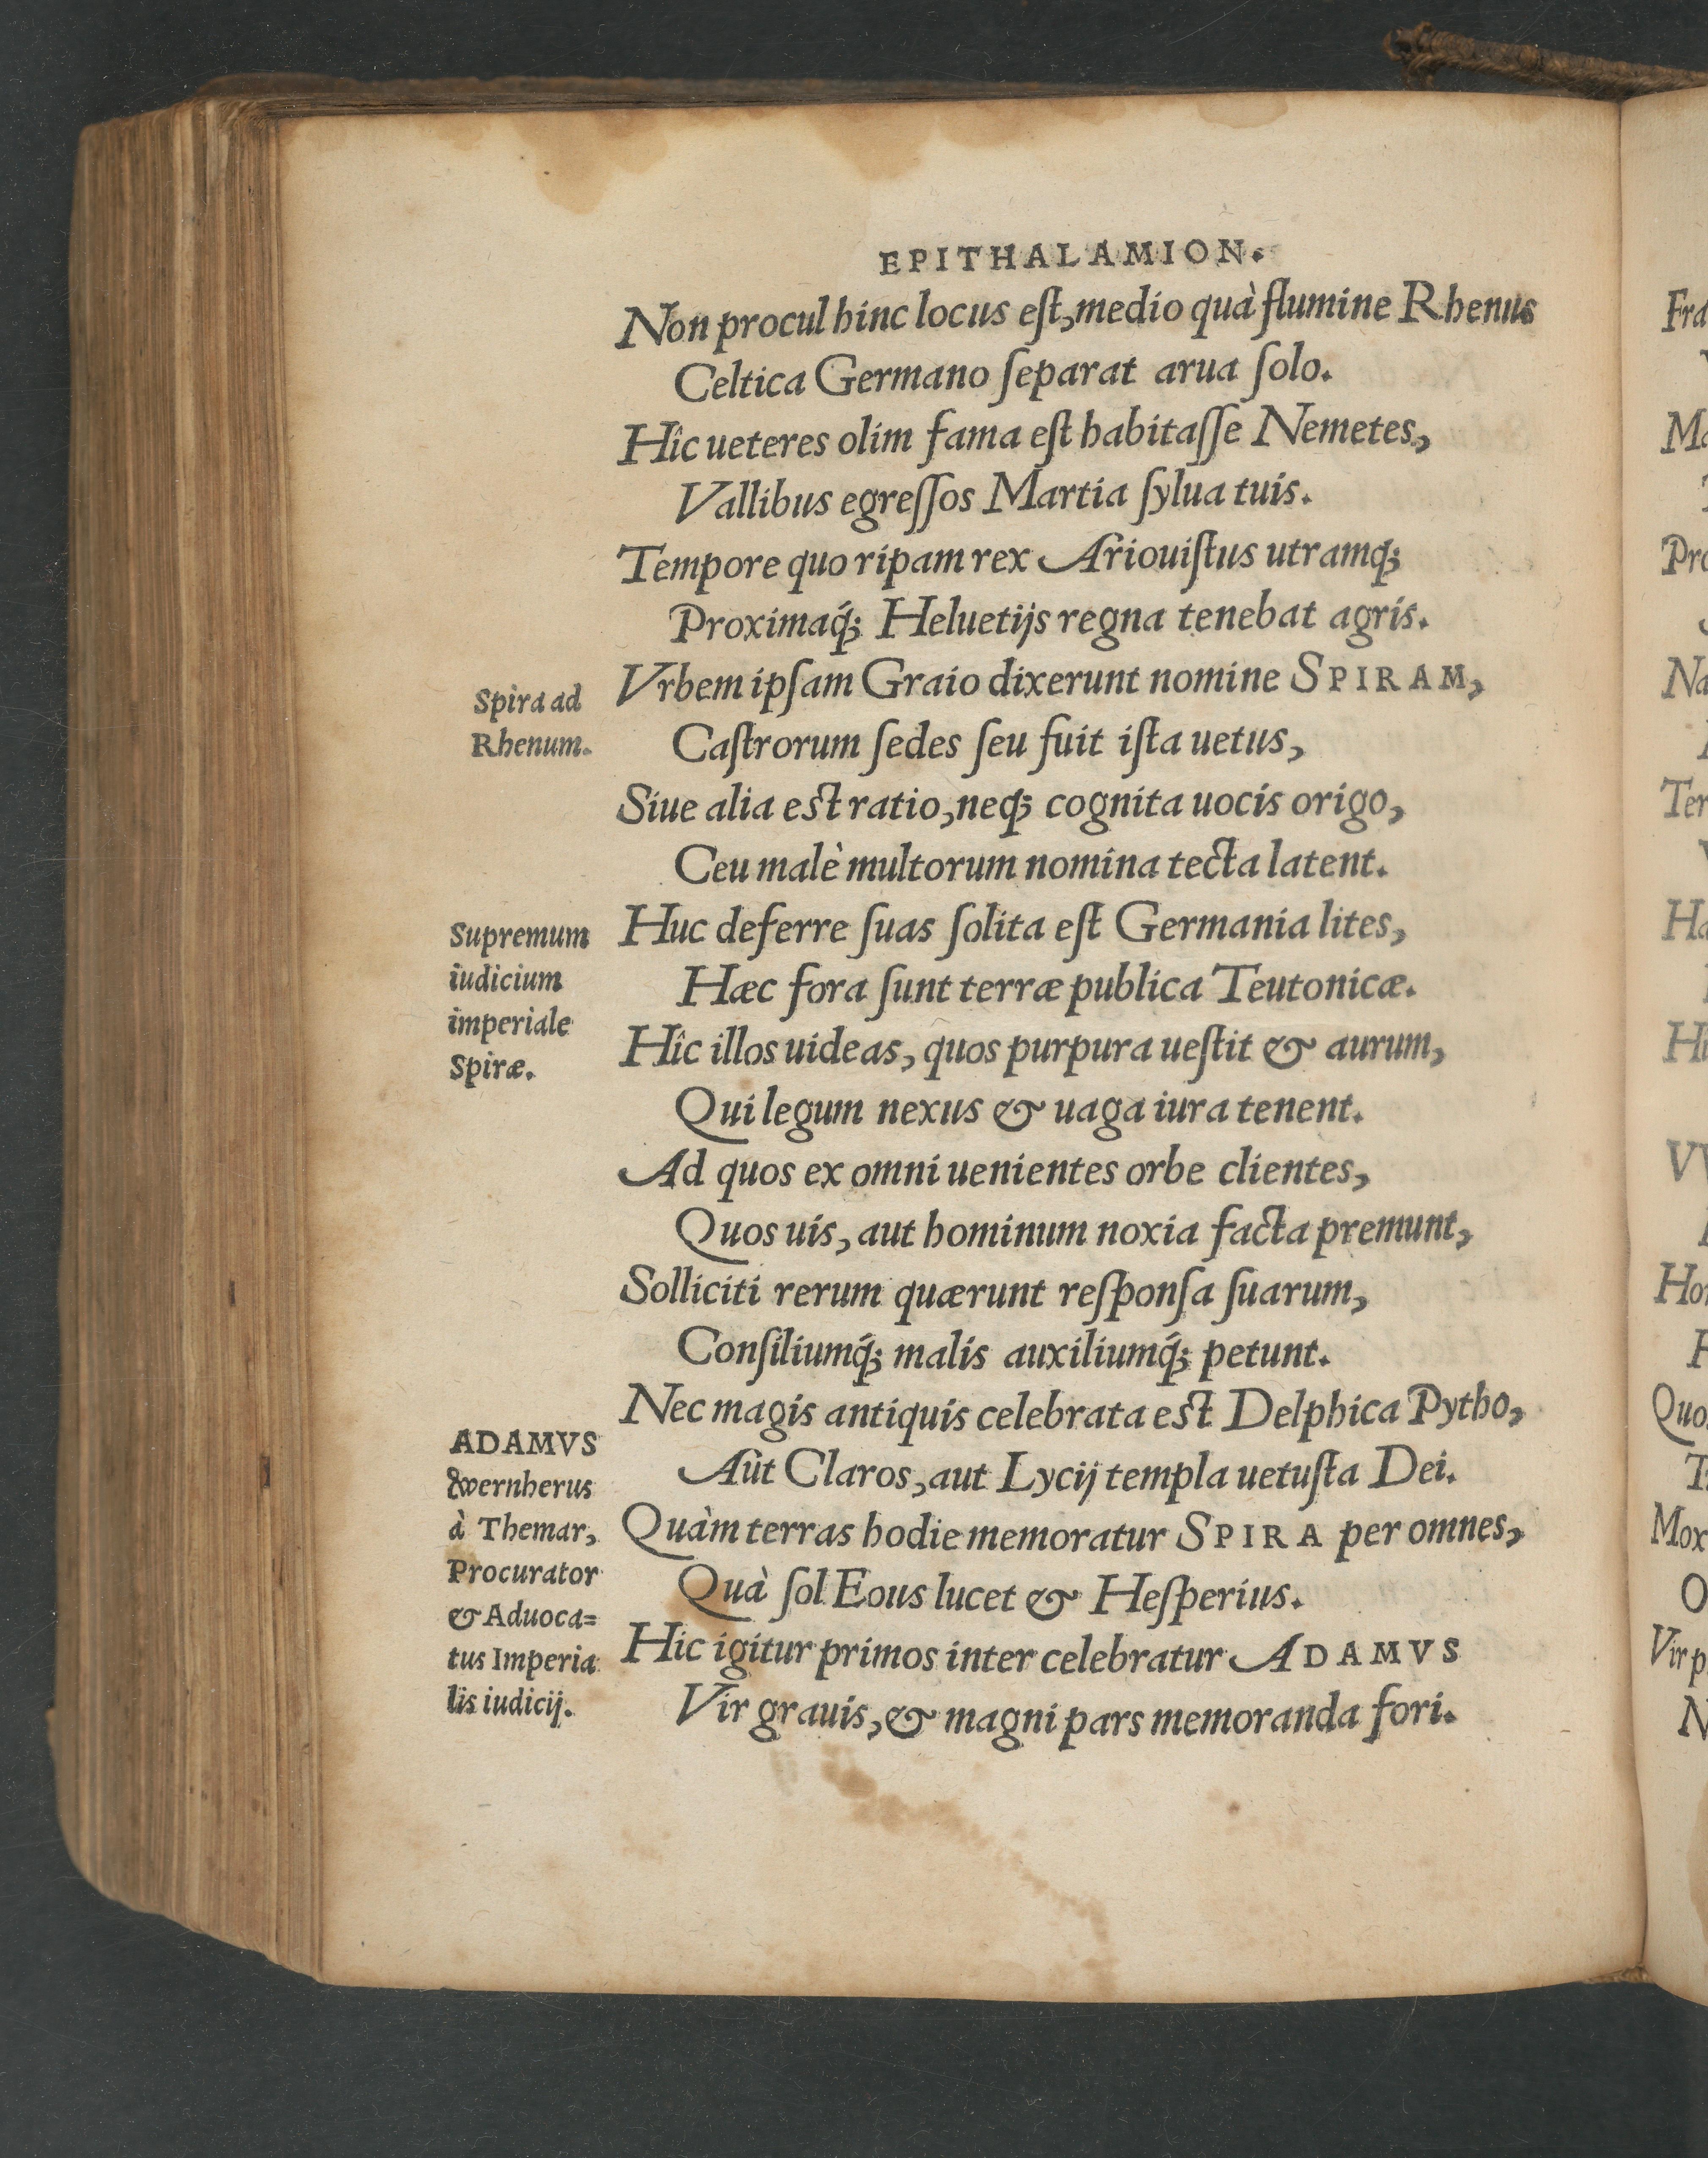 EPITHALAMION.
Non procul hinc locus eſt, medio quà flumine Rhenus
Celtica Germano ſeparat arua ſolo.
Hîc ueteres olim fama eſt habitaſſe Nemetes,
Vallibus egreſſos Martia ſylua tuis.
Tempore quo ripam rex Ariouiſtus utramq;
Proximaq́; Heluetijs regna tenebat agris.
Spira ad
Rhenum.
Vrbem ipſam Graio dixerunt nomine SPIRAM,
Caſtrorum ſedes ſeu fuit iſta uetus,
Siue alia eſt ratio, neq; cognita uocis origo,
Ceu malè multorum nomina tecta latent.
Supremum
iudicium
imperiale
Spiræ.
Huc deferre ſuas ſolita eſt Germania lites,
Hæc fora ſunt terræ publica Teutonicæ.
Hîc illos uideas, quos purpura ueſtit & aurum,
Qui legum nexus & uaga iura tenent.
Ad quos ex omni uenientes orbe clientes,
Quos uis, aut hominum noxia facta premunt,
Solliciti rerum quærunt reſponſa ſuarum,
Conſiliumq́; malis auxiliumq́; petunt.
Nec magis antiquis celebrata eſt Delphica Pytho,
ADAMVS
Wernherus
à Themar,
Procurator
& Aduoca=
tus Imperia
lis iudicij.
Aut Claros, aut Lycij templa uetuſta Dei.
Quàm terras hodie memoratur SPIRA per omnes,
Quà ſol Eous lucet & Heſperius.
Hic igitur primos inter celebratur ADAMVS
Vir grauis, & magni pars memoranda fori.